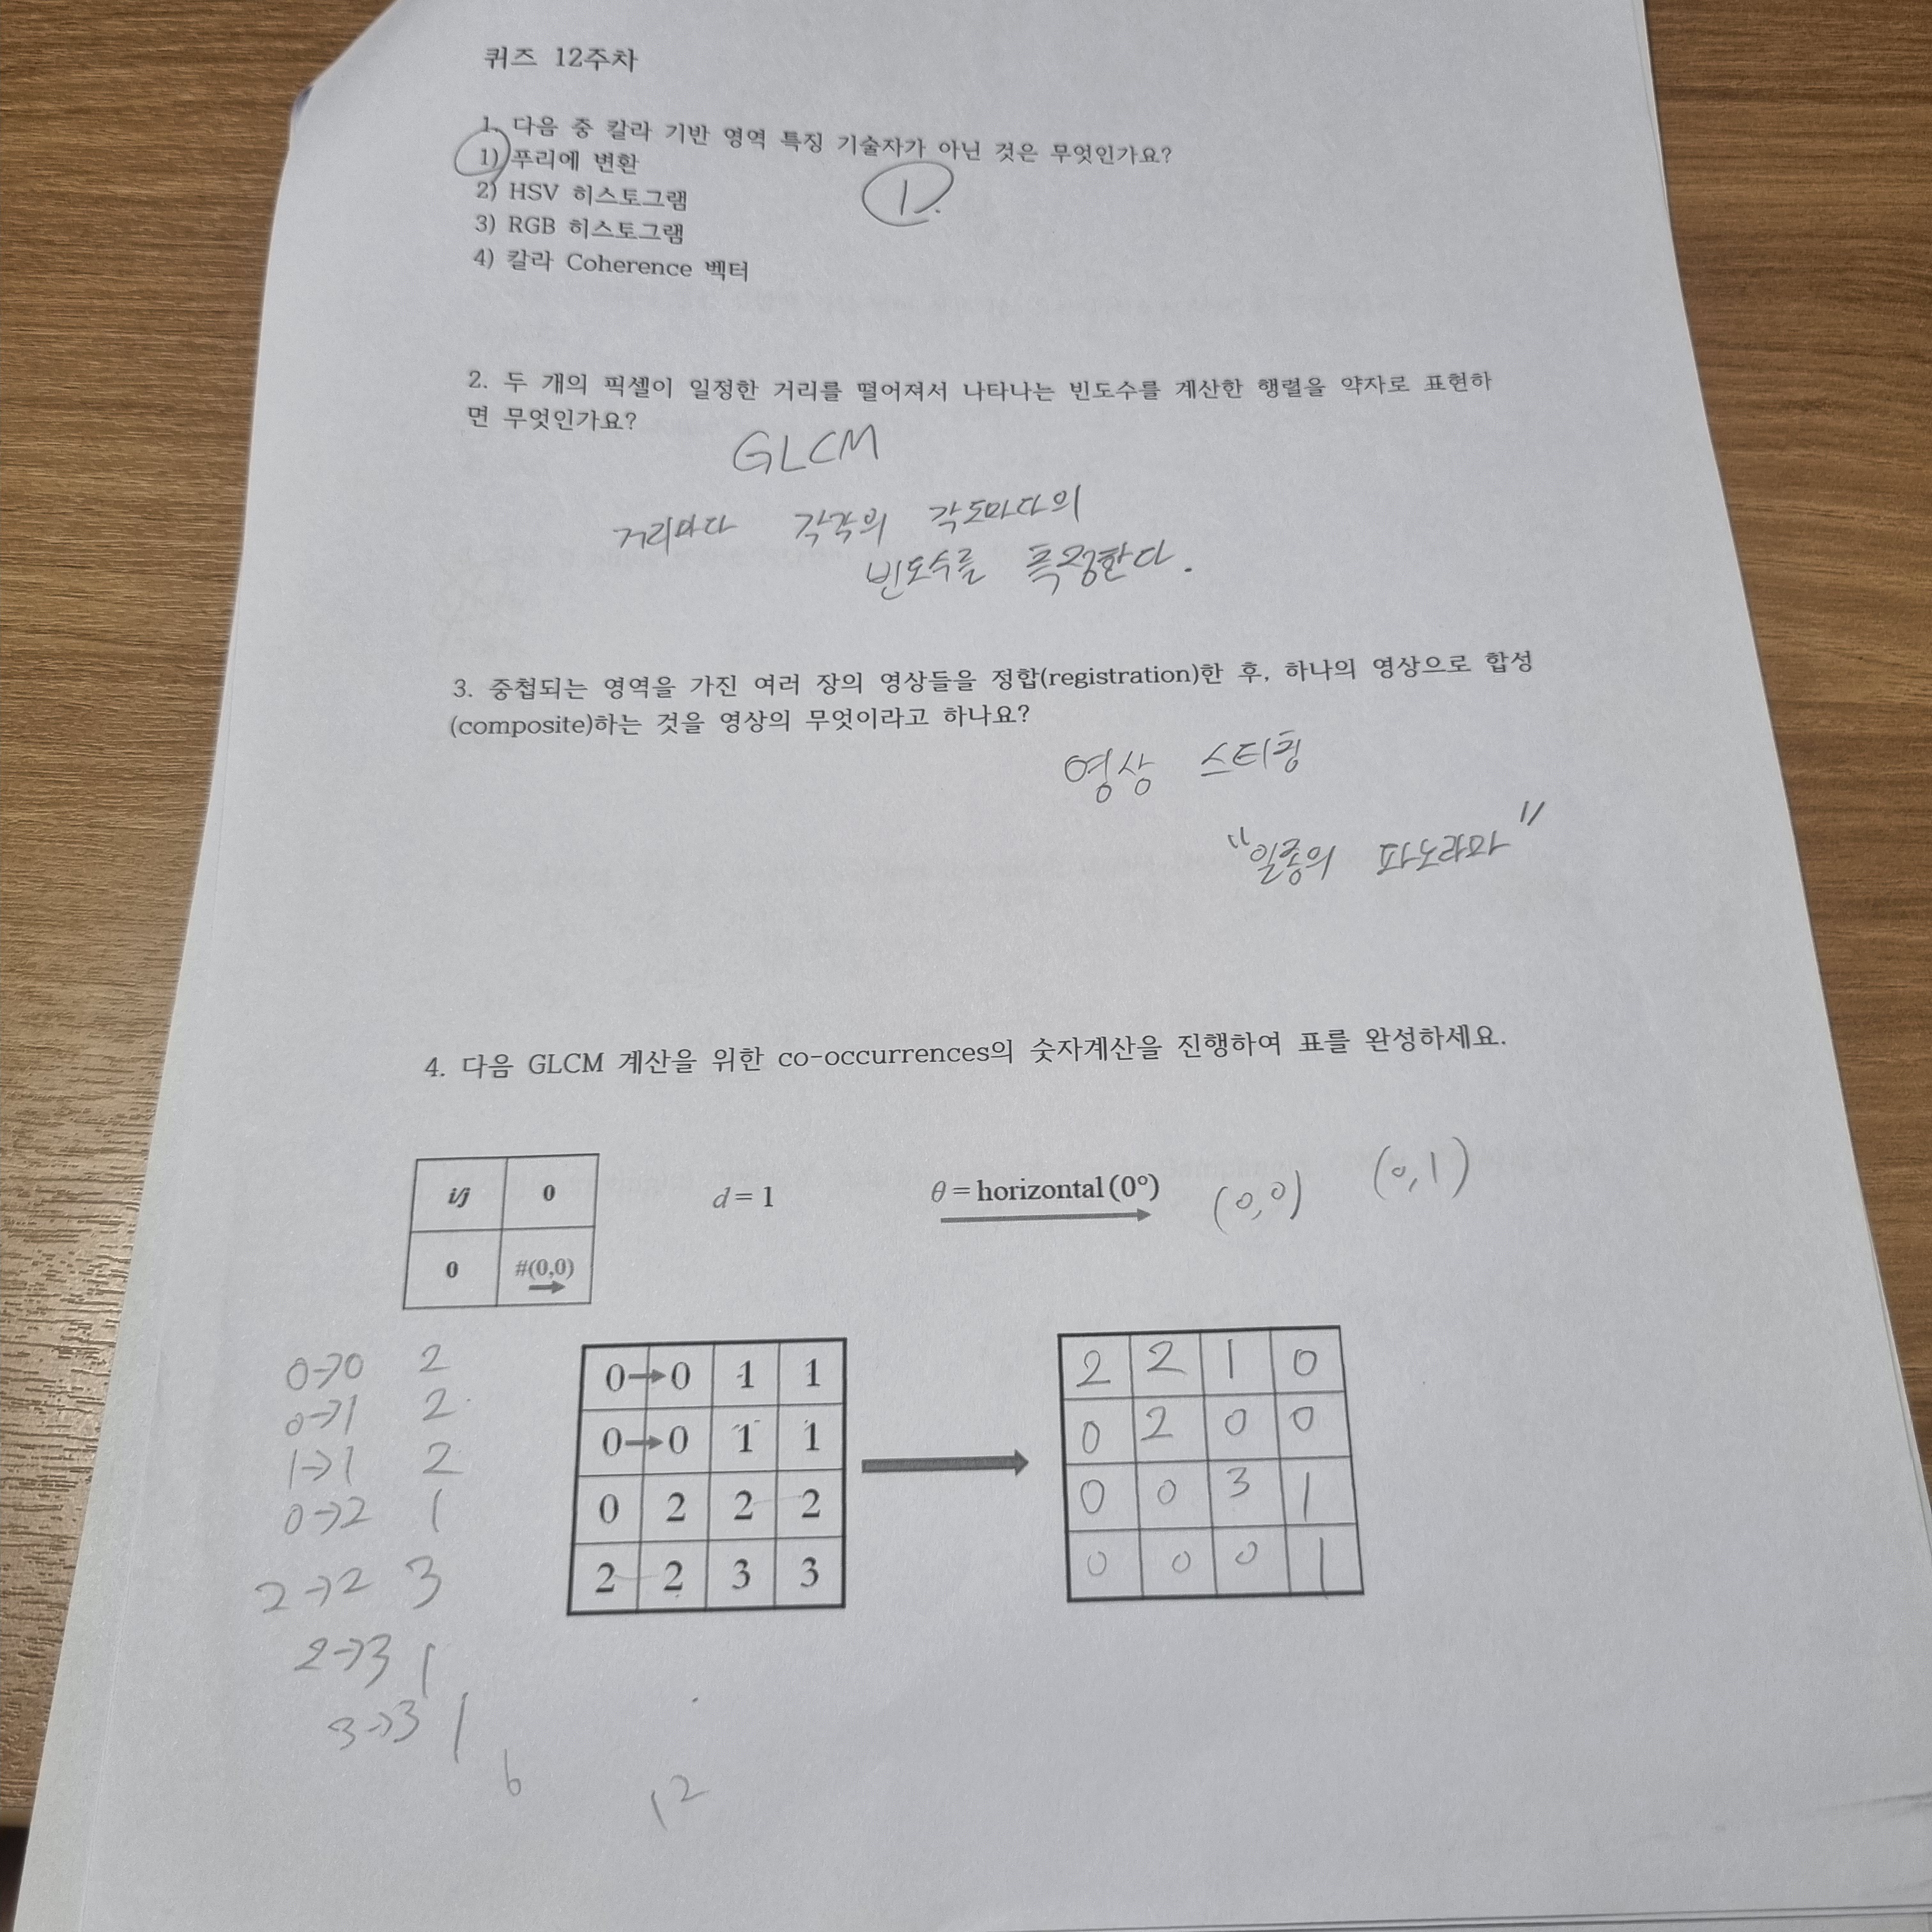 퀴즈 12주차
1. 다음 중 칼라 기반 영역 특징 기술자가 아닌 것은 무엇인가요?
1) 푸리에 변환
2) HSV 히스토그램
1.
3) RGB 히스토그램
4) 칼라 Coherence 벡터
2. 두 개의 픽셀이 일정한 거리를 떨어져서 나타나는 빈도수를 계산한 행렬을 약자로 표현하
면 무엇인가요?
GLCM
거리마다 각각의 각도마다의
빈도수를 측정한다.
3. 중첩되는 영역을 가진 여러 장의 영상들을 정합(registration)한 후, 하나의 영상으로 합성
(composite)하는 것을 영상의 무엇이라고 하나요?
영상 스티칭
"일종의 파노라마"
4. 다음 GLCM 계산을 위한 co-occurrences의 숫자계산을 진행하여 표를 완성하세요.
i/j 0
d = 1 θ = horizontal (0°) (0,0) (0,1)
0 #(0,0)
0→0 2
0→1 2
1→1 2
0→2 1
2→2 3
2→3 1
3→3 1
6
12
0→0 1 1
0→0 1 1
0 2 2 2
2 2 3 3
2 2 1 0
0 2 0 0
0 0 3 1
0 0 0 1